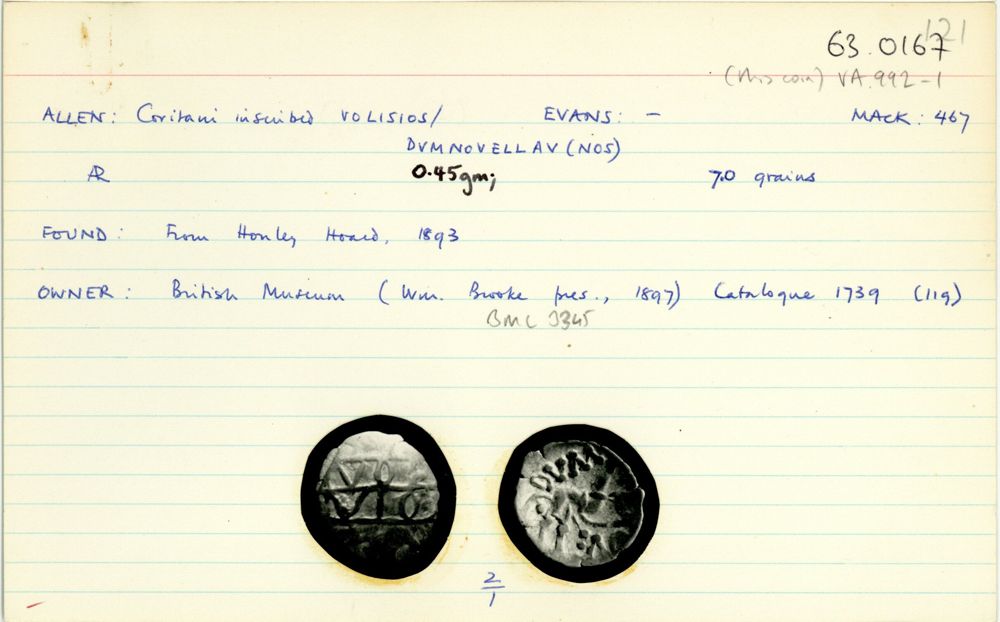 121
63.0167
(this coin) VA.992-1
ALLEN: Coritani inscribed VOLISIOS/ EVANS: — MACK: 467
DVMNOVELLAV(NOS)
AR 0.45gm; 7.0 grains
FOUND: From Honley Hoard, 1893
OWNER: British Museum (Wm. Brooke pres., 1897) Catalogue 1739 (119)
BMC 3345
VO
DVM
2/1